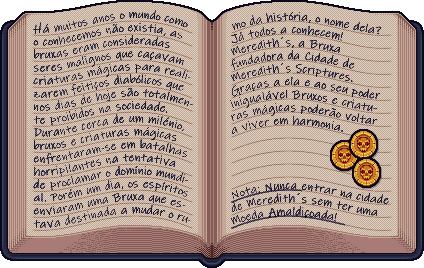 Há muitos anos o mundo como
o conhecemos não existia, as
bruxas eram consideradas
seres malignos que caçavam
criaturas mágicas para reali-
zarem feitiços diabólicos que
nos dias de hoje são totalmen-
te proibidos na sociedade.
Durante cerca de um milênio,
bruxos e criaturas mágicas
enfrentaram-se em batalhas
horripilantes na tentativa
de proclamar o domínio mundi-
al. Porém um dia, os espíritos
enviaram uma Bruxa que es-
tava destinada a mudar o ru-
mo da história, o nome dela?
Já todos a conhecem!
Meredith´s, a Bruxa
fundadora da Cidade de
Meredith´s Scriptures.
Graças a ela e ao seu poder
inigualável Bruxos e criatu-
ras mágicas poderão voltar
a viver em harmonia.
Nota: Nunca entrar na cidade
de Meredith´s sem ter uma
Moeda Amaldiçoada!